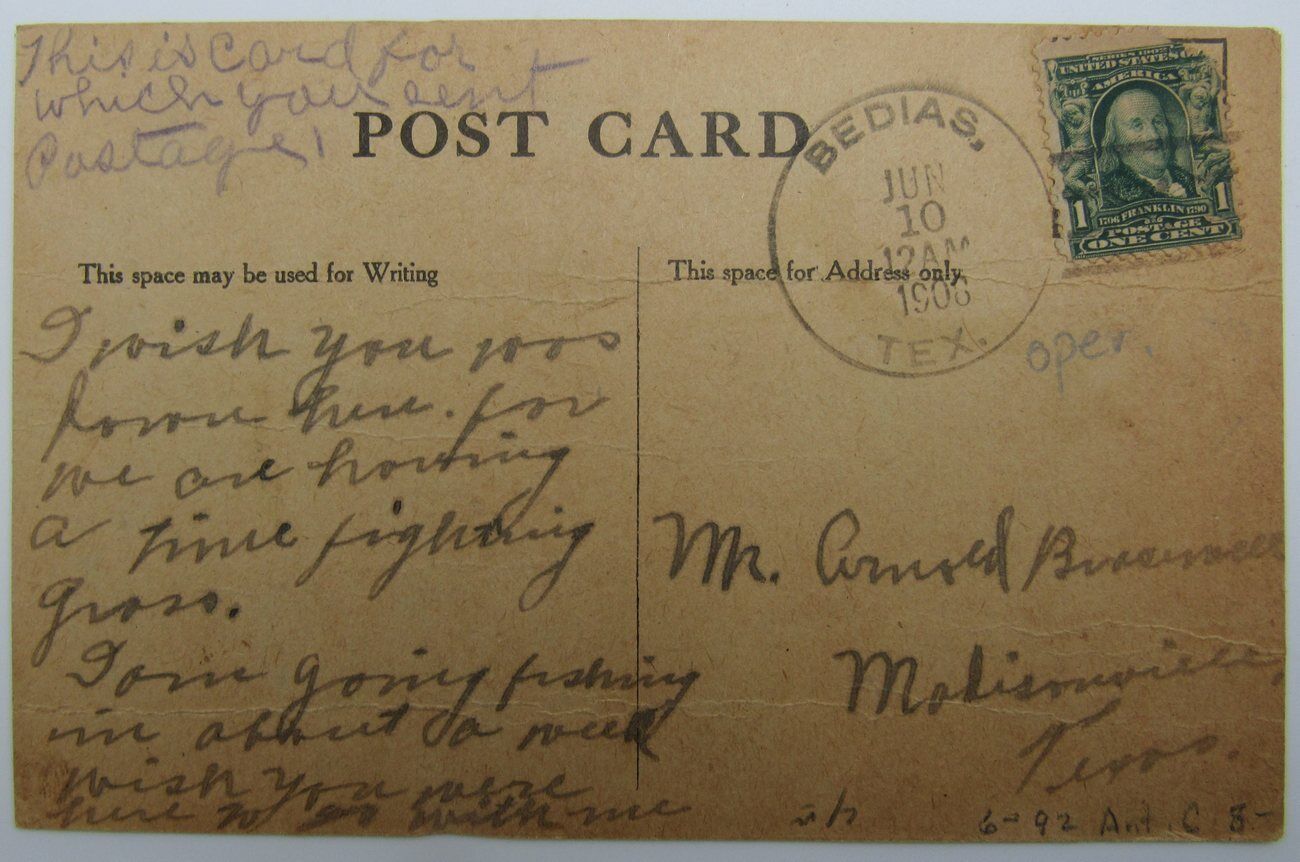 This is card for
which you sent
Postage!
POST CARD
BEDIAS,
JUN
10
12AM
1908
TEX.
SERIES 1902
UNITED STATES OF
AMERICA
1 1
1706 FRANKLIN 1790
POSTAGE
ONE CENT
This space may be used for Writing
This space for Address only
oper.
I wish you was
down here. for
we are having
a time fighting
Grass.
I am going fishing
in about a week
wish you were
here to go with me
Mr. Arnold
Madisonville,
Texas.
6-92 Ant. C 8-